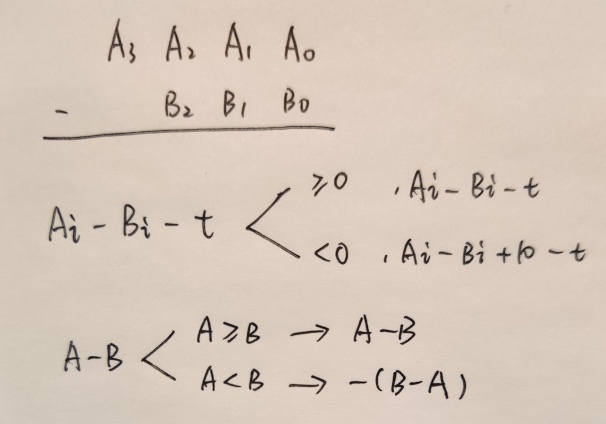 A₃ A₂ A₁ A₀
- B₂ B₁ B₀
Ai - Bi - t
≥0 , Ai - Bi - t
<0 , Ai - Bi + 10 - t
A - B
A ≥ B → A - B
A < B → -(B - A)